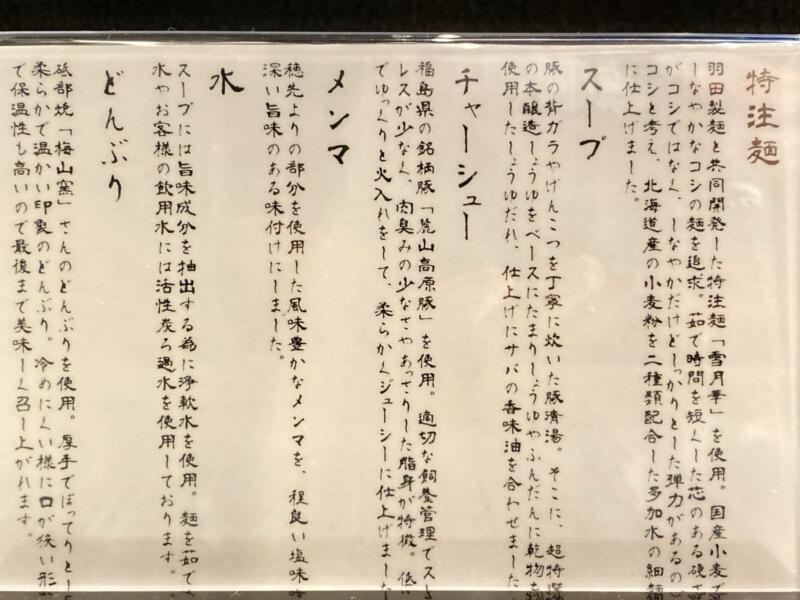 特注麺
羽田製麺と共同開発した特注麺「雪月華」を使用。国産小麦で
しなやかなコシの麺を追求。茹で時間を短くした芯のある硬さ
がコシではなく、しなやかだけどしっかりとした弾力があるの
コシと考え、北海道産の小麦粉を二種類配合した多加水の細麺
に仕上げました。
スープ
豚の背ガラやげんこつを丁寧に炊いた豚清湯。そこに、超特選
の本醸造しょうゆをベースにたまりしょうゆやふんだんに乾物を
使用したしょうゆだれ、仕上げにサバの香味油を合わせました
チャーシュー
福島県の銘柄豚「麓山高原豚」を使用。適切な飼養管理でスト
レスが少なく、肉臭みの少なさやあっさりした脂身が特徴。低
でゆっくりと火入れをして、柔らかくジューシーに仕上げました
メンマ
穂先よりの部分を使用した風味豊かなメンマを、程良い塩味
深い旨味のある味付けにしました。
水
スープには旨味成分を抽出する為に浄軟水を使用。麺を茹で
水やお客様の飲用水には活性炭ろ過水を使用しております。
どんぶり
砥部焼「梅山窯」さんのどんぶりを使用。厚手でぽってりとし
柔らかで温かい印象のどんぶり。冷めにくい様に口が狭い形
で保温性も高いので最後まで美味しく召し上がれます。